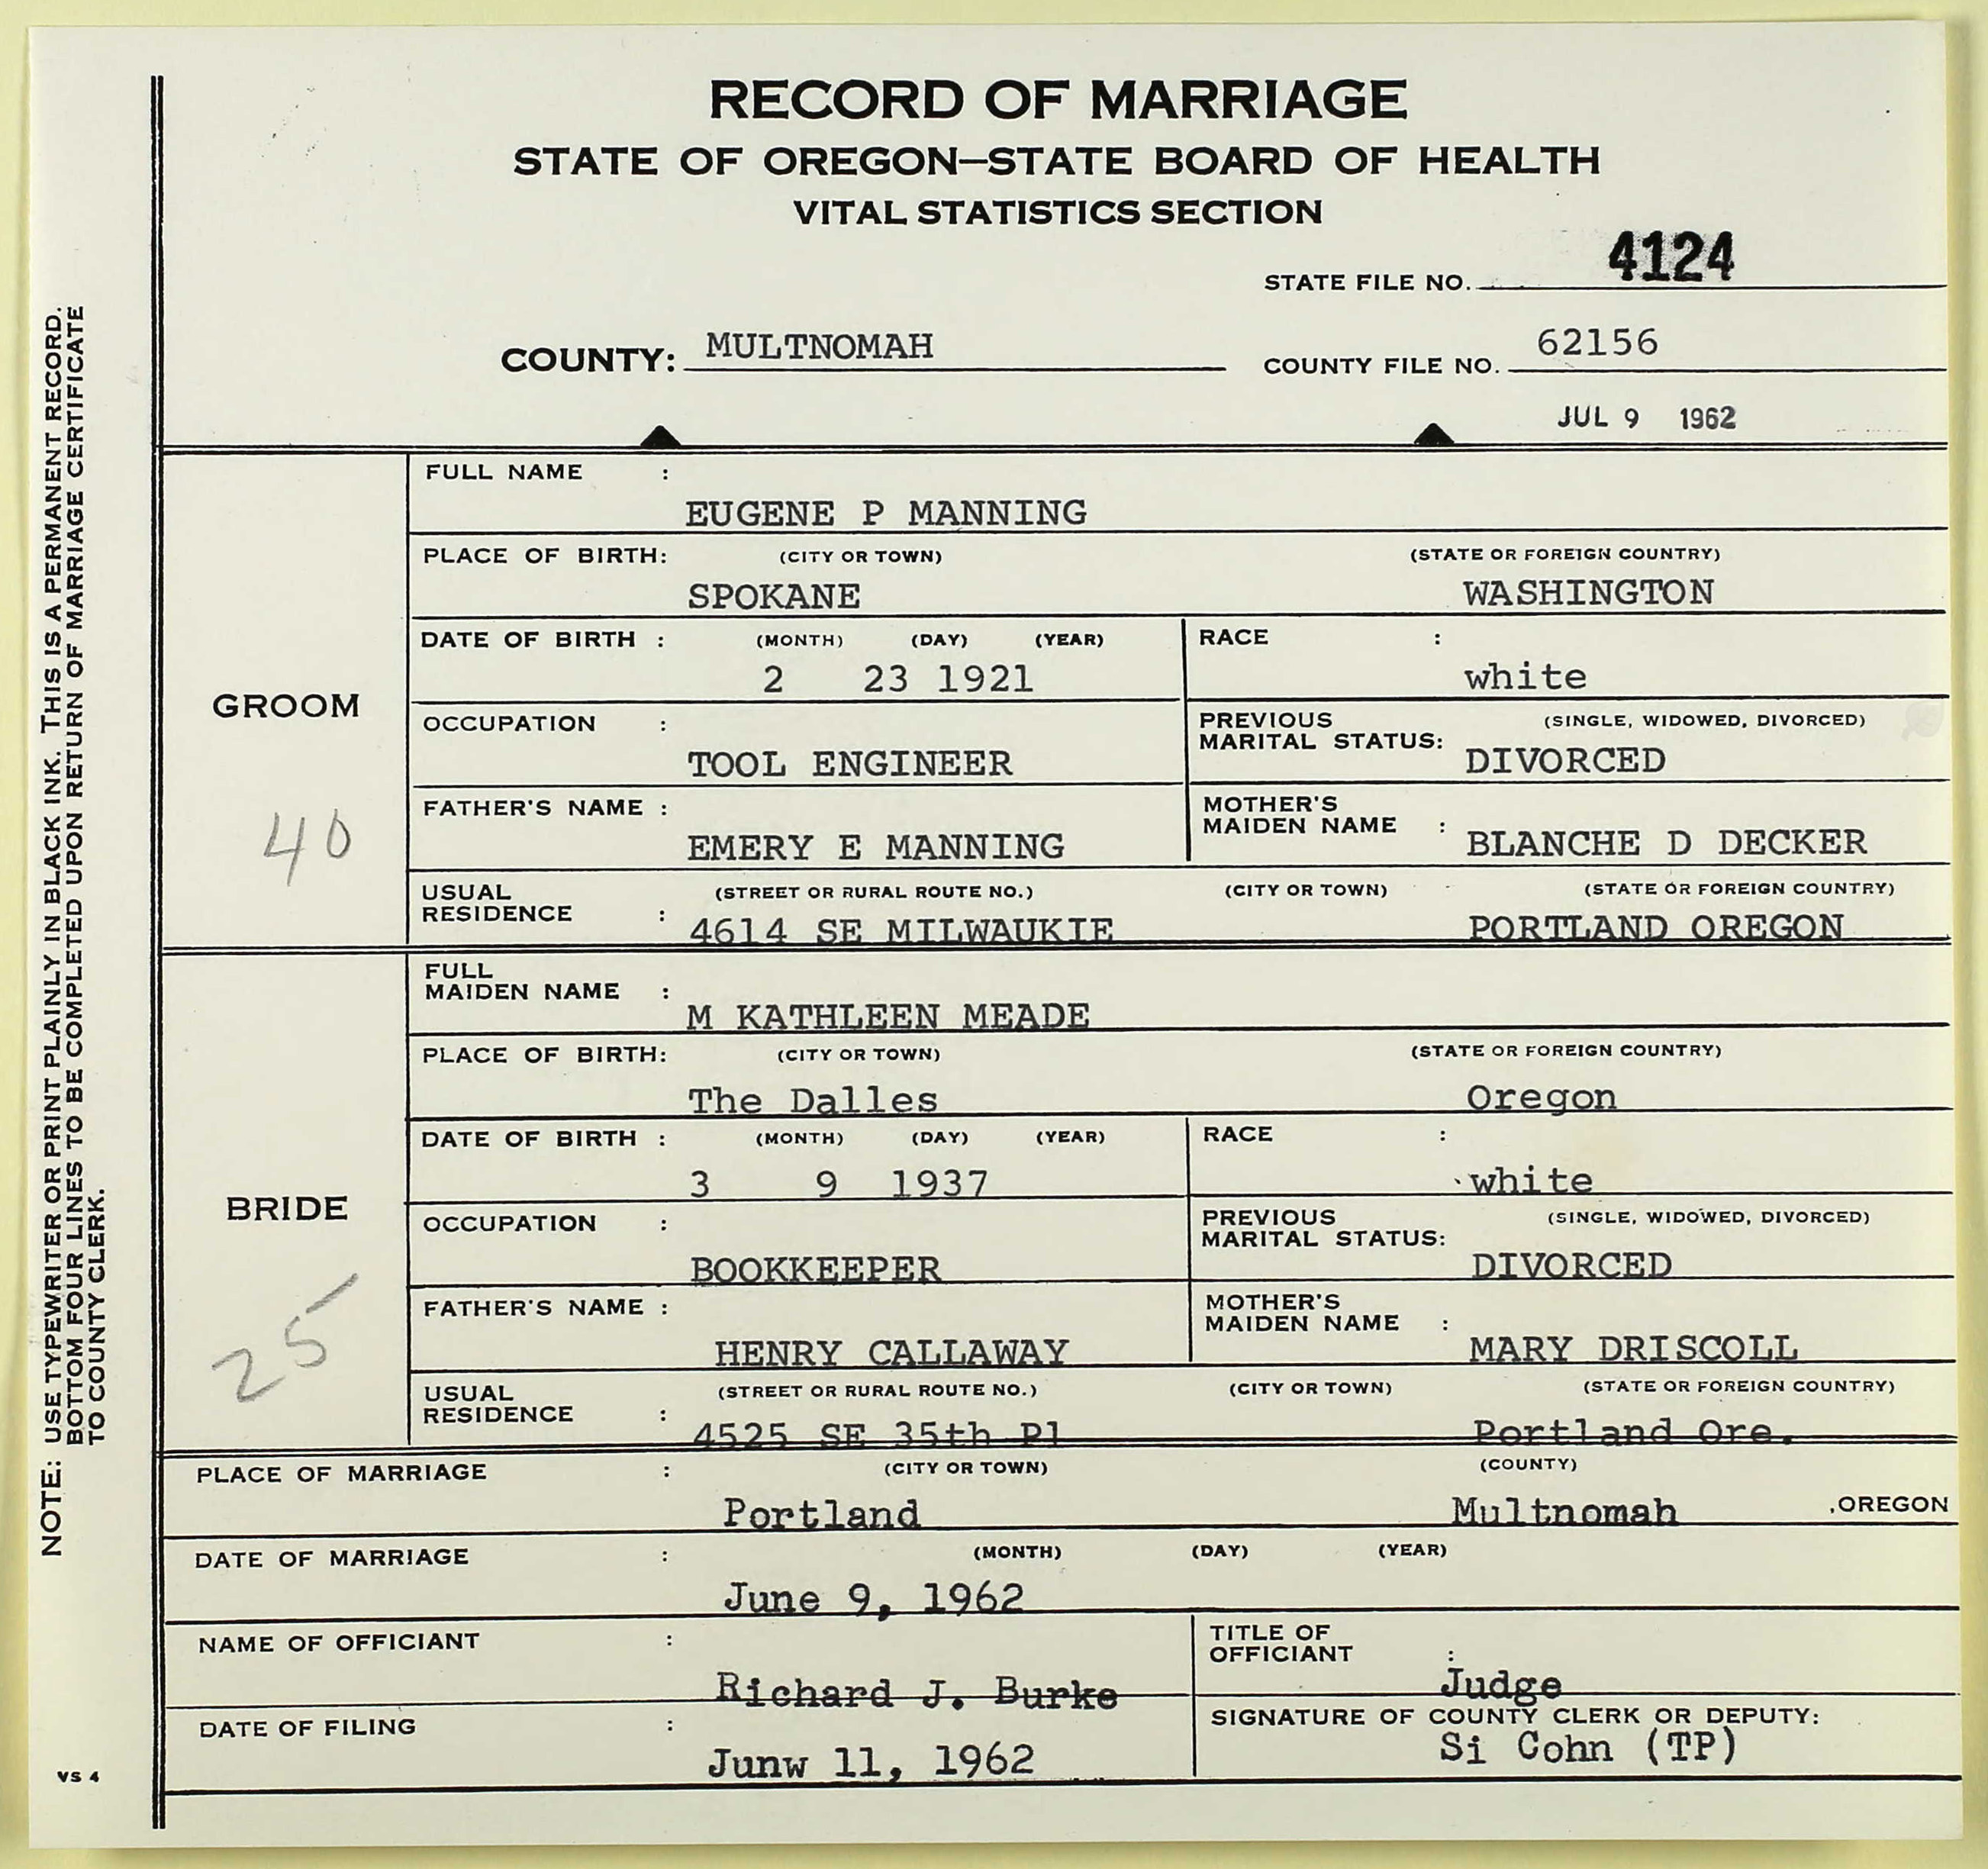 RECORD OF MARRIAGE
STATE OF OREGON—STATE BOARD OF HEALTH
VITAL STATISTICS SECTION
STATE FILE NO. 4124
COUNTY: MULTNOMAH COUNTY FILE NO. 62156
JUL 9 1962
GROOM
40
FULL NAME :
EUGENE P MANNING
PLACE OF BIRTH: (CITY OR TOWN) (STATE OR FOREIGN COUNTRY)
SPOKANE WASHINGTON
DATE OF BIRTH : (MONTH) (DAY) (YEAR) RACE :
2 23 1921 white
OCCUPATION : PREVIOUS MARITAL STATUS: (SINGLE, WIDOWED, DIVORCED)
TOOL ENGINEER DIVORCED
FATHER'S NAME : MOTHER'S MAIDEN NAME :
EMERY E MANNING BLANCHE D DECKER
USUAL RESIDENCE : (STREET OR RURAL ROUTE NO.) (CITY OR TOWN) (STATE OR FOREIGN COUNTRY)
4614 SE MILWAUKIE PORTLAND OREGON
BRIDE
25
FULL MAIDEN NAME :
M KATHLEEN MEADE
PLACE OF BIRTH: (CITY OR TOWN) (STATE OR FOREIGN COUNTRY)
The Dalles Oregon
DATE OF BIRTH : (MONTH) (DAY) (YEAR) RACE :
3 9 1937 white
OCCUPATION : PREVIOUS MARITAL STATUS: (SINGLE, WIDOWED, DIVORCED)
BOOKKEEPER DIVORCED
FATHER'S NAME : MOTHER'S MAIDEN NAME :
HENRY CALLAWAY MARY DRISCOLL
USUAL RESIDENCE : (STREET OR RURAL ROUTE NO.) (CITY OR TOWN) (STATE OR FOREIGN COUNTRY)
4525 SE 35th Pl Portland Ore.
PLACE OF MARRIAGE : (CITY OR TOWN) (COUNTY)
Portland Multnomah ,OREGON
DATE OF MARRIAGE : (MONTH) (DAY) (YEAR)
June 9, 1962
NAME OF OFFICIANT : TITLE OF OFFICIANT :
Richard J. Burke Judge
DATE OF FILING : SIGNATURE OF COUNTY CLERK OR DEPUTY:
Junw 11, 1962 Si Cohn (TP)
NOTE: USE TYPEWRITER OR PRINT PLAINLY IN BLACK INK. THIS IS A PERMANENT RECORD.
BOTTOM FOUR LINES TO BE COMPLETED UPON RETURN OF MARRIAGE CERTIFICATE
TO COUNTY CLERK.
VS 4